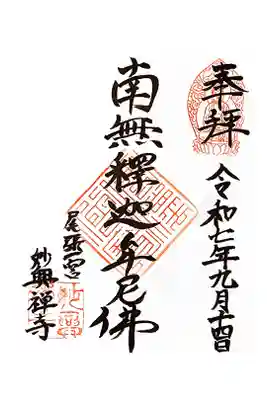 奉拝
令和七年九月十四日
南無釋迦牟尼佛
尾張一宮
妙興禪寺